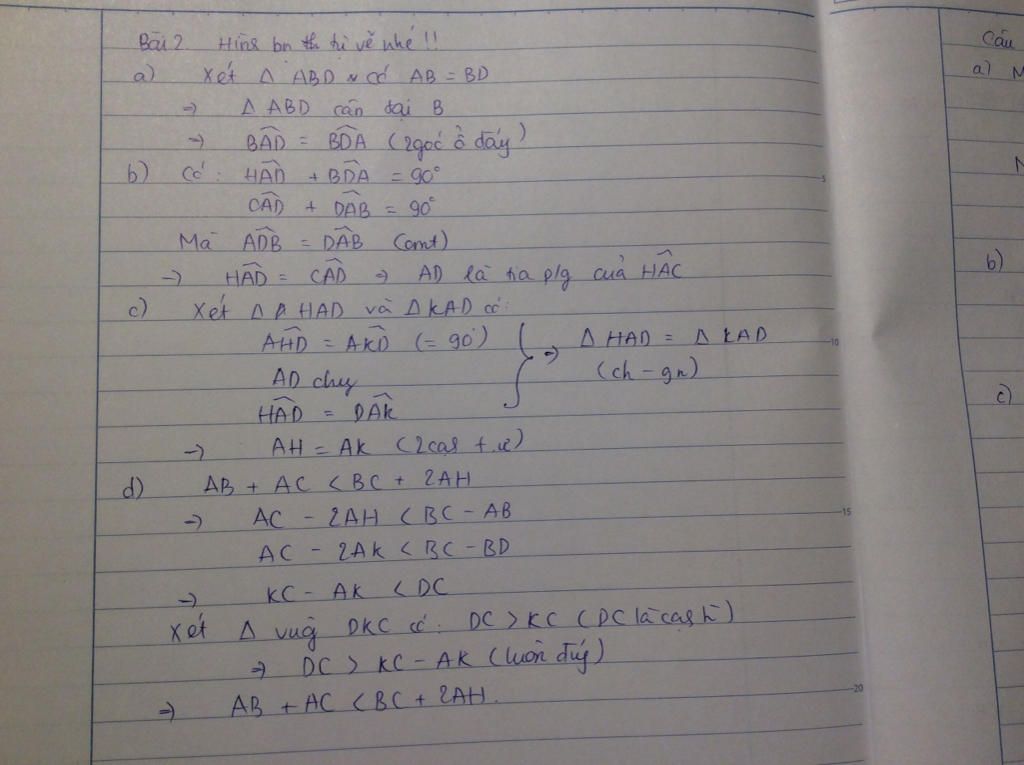 Bài 2. Hình bn tự vẽ nhé !!
a) Xét Δ ABD có AB = BD
→ Δ ABD cân tại B
→ BÂD = BD̂A (2góc ở đáy)
b) Có: HÂD + BD̂A = 90°
CÂD + DÂB = 90°
Mà AD̂B = DÂB (cmt)
→ HÂD = CÂD → AD là tia p/g của HÂC
c) Xét Δ HAD và Δ KAD có:
AĤD = AK̂D (= 90°)
AD chung
HÂD = DÂK
⇒ Δ HAD = Δ KAD
(ch - gn)
→ AH = AK (2 cạh t.ư)
d) AB + AC < BC + 2AH
→ AC - 2AH < BC - AB
AC - 2AK < BC - BD
→ KC - AK < DC
Xét Δ vuôg DKC có: DC > KC (DC là cạh h)
⇒ DC > KC - AK (luôn đúg)
⇒ AB + AC < BC + 2AH.
Câu
a) M
b)
c)
5
10
15
20